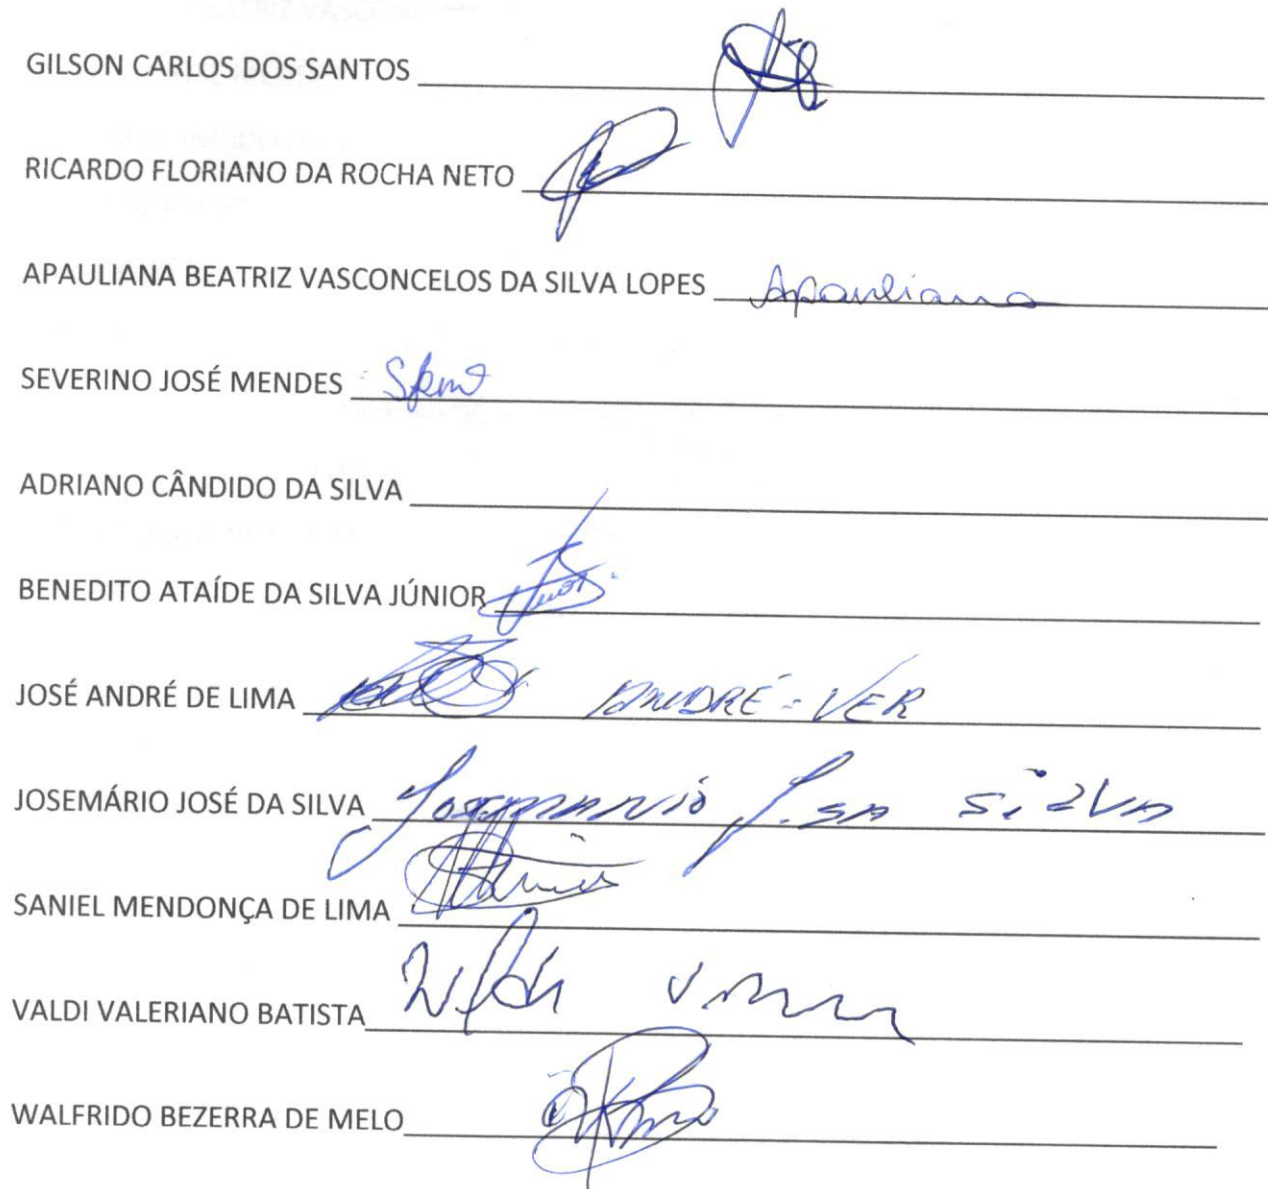 GILSON CARLOS DOS SANTOS
RICARDO FLORIANO DA ROCHA NETO
APAULIANA BEATRIZ VASCONCELOS DA SILVA LOPES Apauliana
SEVERINO JOSÉ MENDES
ADRIANO CÂNDIDO DA SILVA
BENEDITO ATAÍDE DA SILVA JÚNIOR
JOSÉ ANDRÉ DE LIMA ANDRÉ - VER
JOSEMÁRIO JOSÉ DA SILVA Josemario J. da Silva
SANIEL MENDONÇA DE LIMA
VALDI VALERIANO BATISTA
WALFRIDO BEZERRA DE MELO